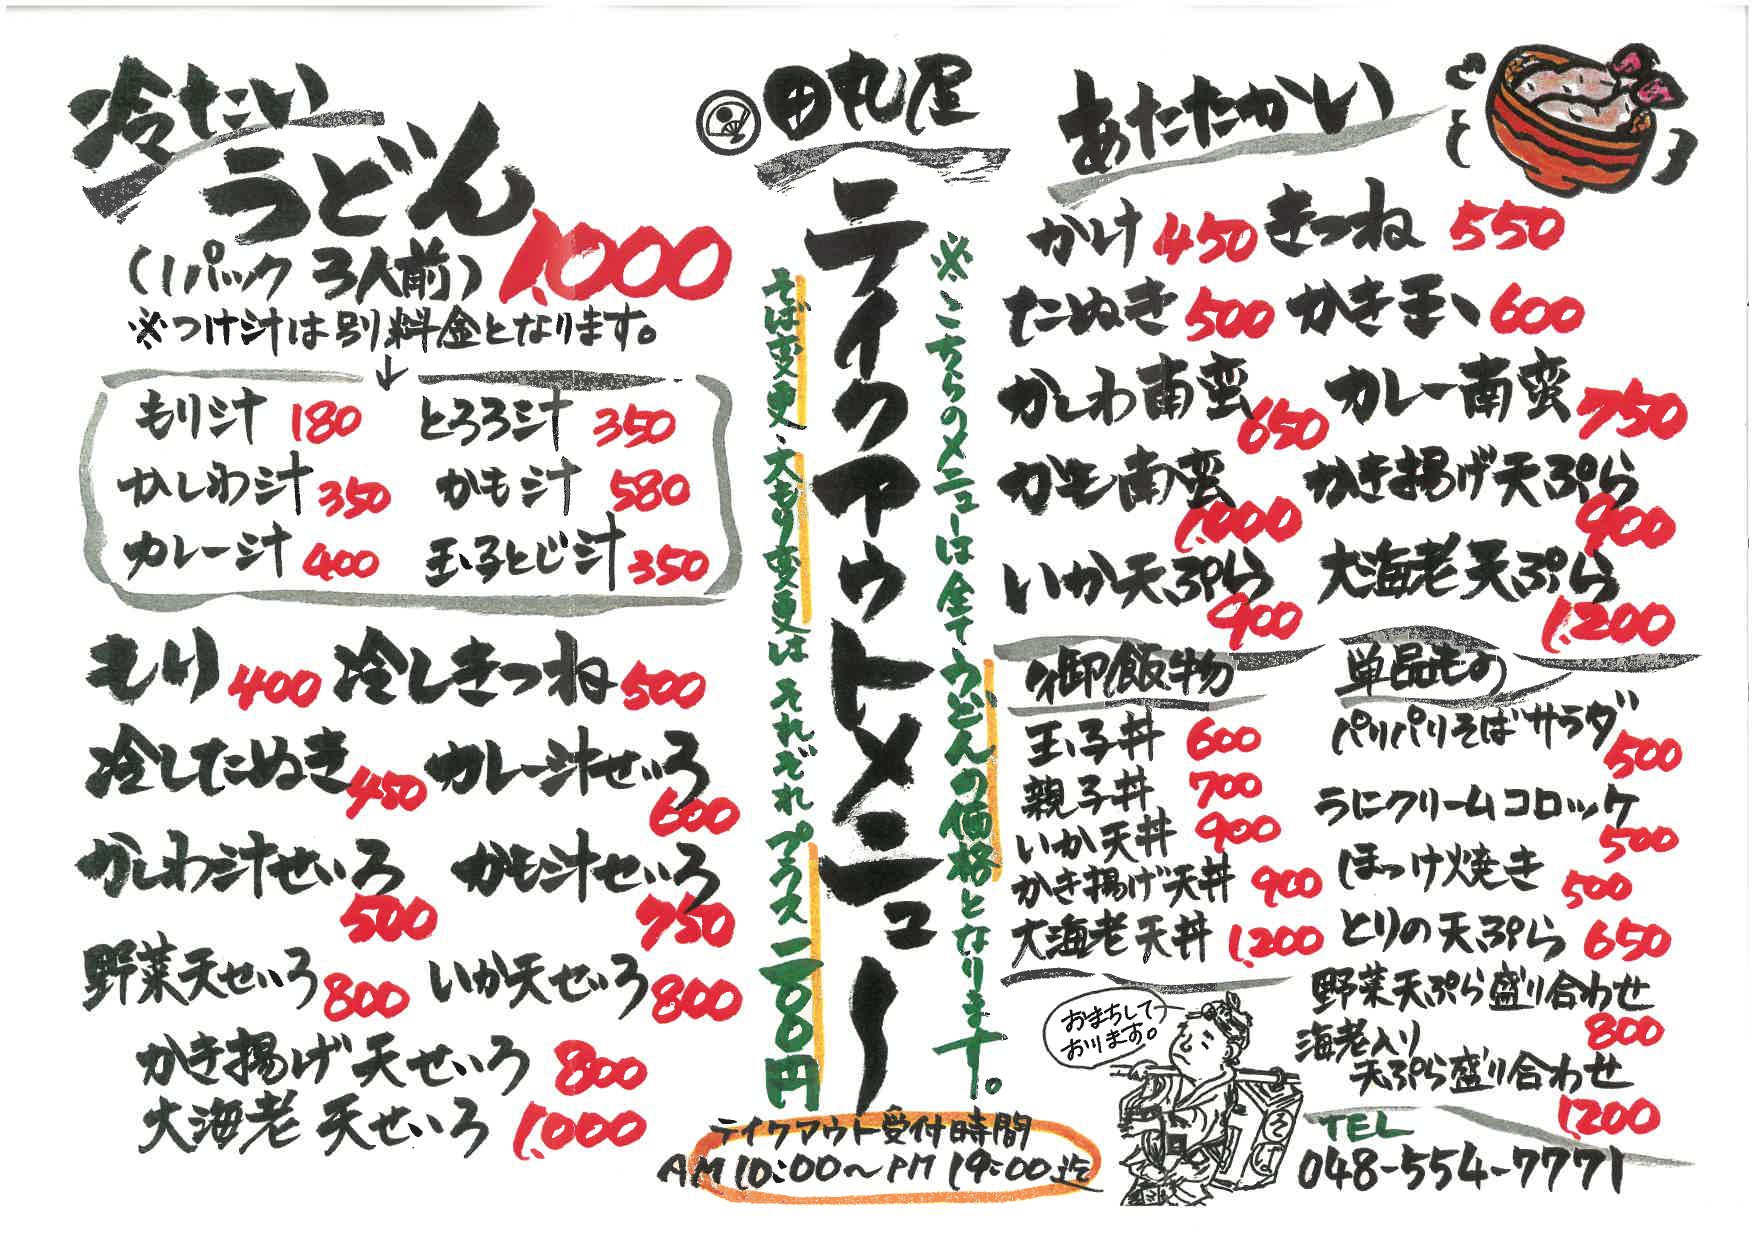 冷たい
うどん
(1パック 3人前) 1,000
※つけ汁は別料金となります。
↓
もり汁 180 とろろ汁 350
かしわ汁 350 かも汁 580
カレー汁 400 玉子とじ汁 350
もり 400 冷しきつね 500
冷したぬき 450 カレー汁せいろ 600
かしわ汁せいろ 500 かも汁せいろ 750
野菜天せいろ 800 いか天せいろ 800
かき揚げ天せいろ 800
大海老天せいろ 1,000
田丸屋
テイクアウトメニュー
※こちらのメニューは全てうどんの価格となります。
そば変更・大もり変更はそれぞれプラス一〇〇円
テイクアウト受付時間
AM10:00〜PM19:00迄
あたたかい
かけ 450 きつね 550
たぬき 500 かき玉 600
かしわ南蛮 650 カレー南蛮 750
かも南蛮 1,000 かき揚げ天ぷら 900
いか天ぷら 900 大海老天ぷら 1,200
御飯物
玉子丼 600
親子丼 700
いか天丼 900
かき揚げ天丼 900
大海老天丼 1,200
おまちして
おります。
そば
単品もの
パリパリそばサラダ 500
うにクリームコロッケ 500
ほっけ焼き 500
とりの天ぷら 650
野菜天ぷら盛り合わせ 800
海老入り
天ぷら盛り合わせ 1,200
TEL
048-554-7771